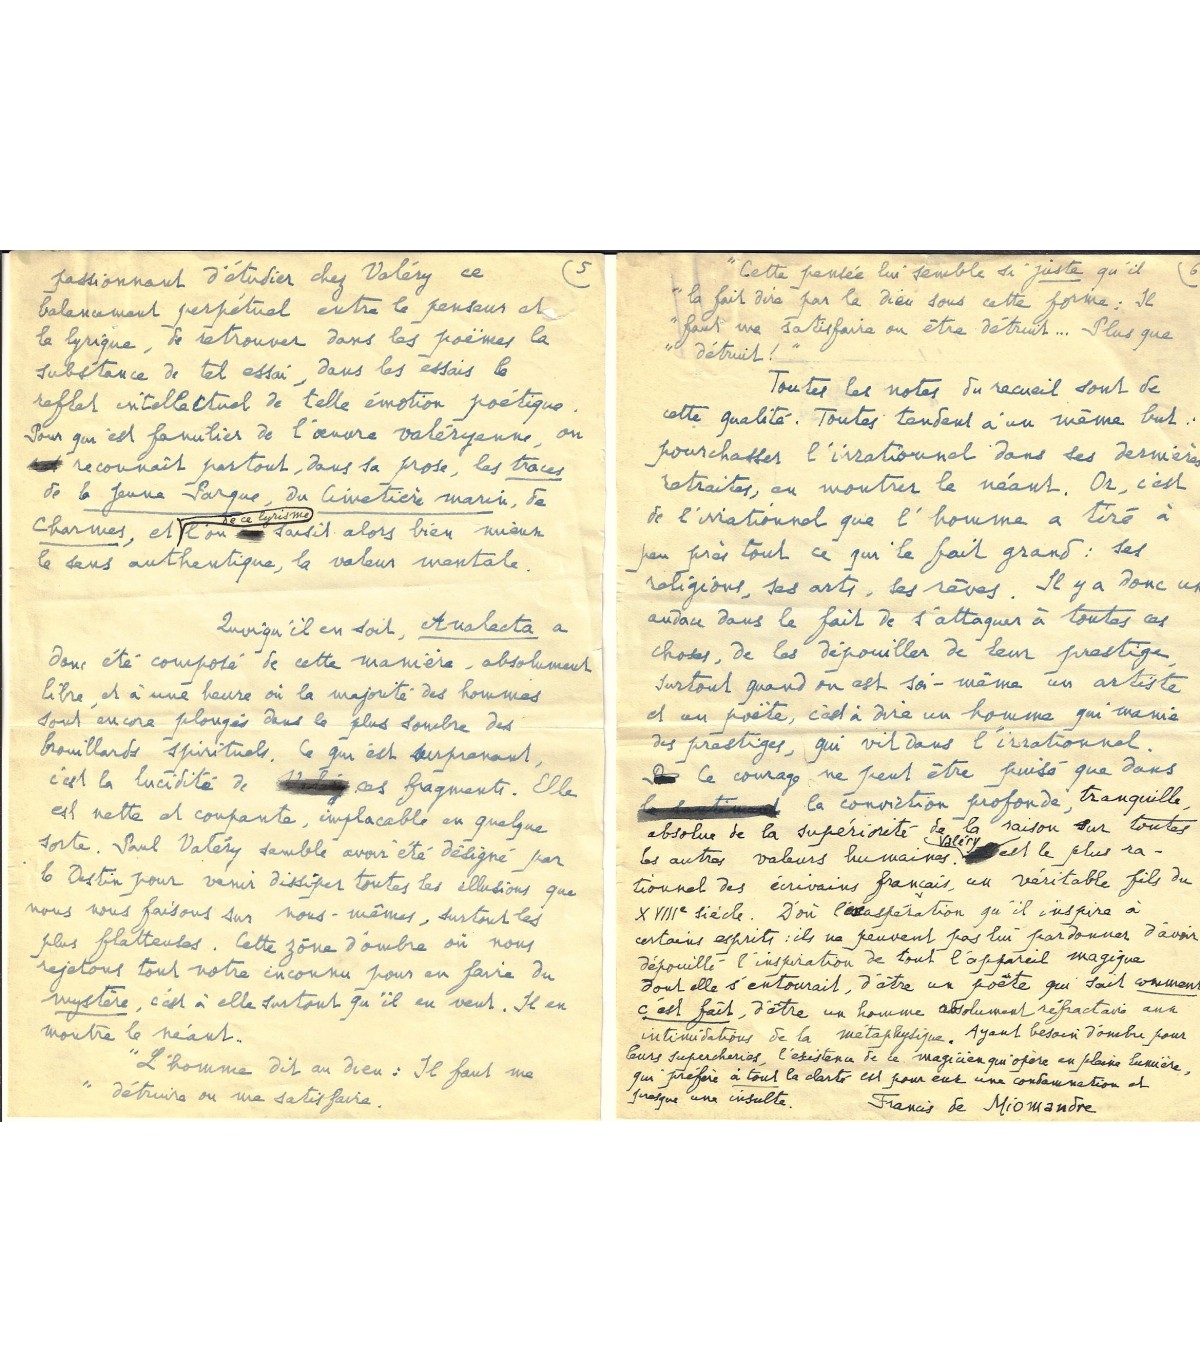 5
passionnant d'étudier chez Valéry ce
balancement perpétuel entre le penseur et
le lyrique, de retrouver dans les poëmes la
substance de tel essai, dans les essais le
reflet intellectuel de telle émotion poétique.
Pour qui est familier de l'œuvre valéryenne, on
reconnaît partout, dans sa prose, les traces
de la Jeune Parque, du Cimetière marin, de
de ce lyrisme
Charmes, et l'on saisit alors bien mieux
le sens authentique, la valeur mentale.
Quoiqu'il en soit, Analecta a
donc été composé de cette manière, absolument
libre, et à une heure où la majorité des hommes
sont encore plongés dans le plus sombre des
brouillards spirituels. Ce qui est surprenant,
c'est la lucidité de ces fragments. Elle
est nette et coupante, implacable en quelque
sorte. Paul Valéry semble avoir été désigné par
le Destin pour venir dissiper toutes les illusions que
nous nous faisons sur nous-mêmes, surtout les
plus flatteuses. Cette zône d'ombre où nous
rejetons tout notre inconnu pour en faire du
mystère, c'est à elle surtout qu'il en veut. Il en
montre le néant..
"L'homme dit au dieu : Il faut me
" détruire ou me satisfaire.
6
"Cette pensée lui semble si juste qu'il
"la fait dire par le dieu sous cette forme : Il
"faut me satisfaire ou être détruit... Plus que
" détruit ! "
Toutes les notes du recueil sont de
cette qualité. Toutes tendent à un même but :
pourchasser l'irrationnel dans ses dernières
retraites, en montrer le néant. Or, c'est
de l'irrationnel que l'homme a tiré à
peu près tout ce qui le fait grand : ses
religions, ses arts, ses rêves. Il y a donc un
audace dans le fait de s'attaquer à toutes ces
choses, de les dépouiller de leur prestige,
surtout quand on est soi-même un artiste
et un poëte, c'est à dire un homme qui manie
des prestiges, qui vit dans l'irrationnel.
Ce courage ne peut être puisé que dans
la conviction profonde, tranquille,
absolue de la supériorité de la raison sur toutes
Valéry
les autres valeurs humaines. est le plus ra-
tionnel des écrivains français, un véritable fils du
XVIIIe siècle. D'où l'exaspération qu'il inspire à
certains esprits : ils ne peuvent pas lui pardonner d'avoir
dépouillé l'inspiration de tout l'appareil magique
dont elle s'entourait, d'être un poëte qui sait comment
c'est fait, d'être un homme absolument réfractaire aux
intimidations de la métaphysique. Ayant besoin d'ombre pour
leurs supercheries, l'existence de ce magicien qui opère en pleine lumière,
qui préfère à tout la clarté est pour eux une condamnation et
presque une insulte.
Francis de Miomandre